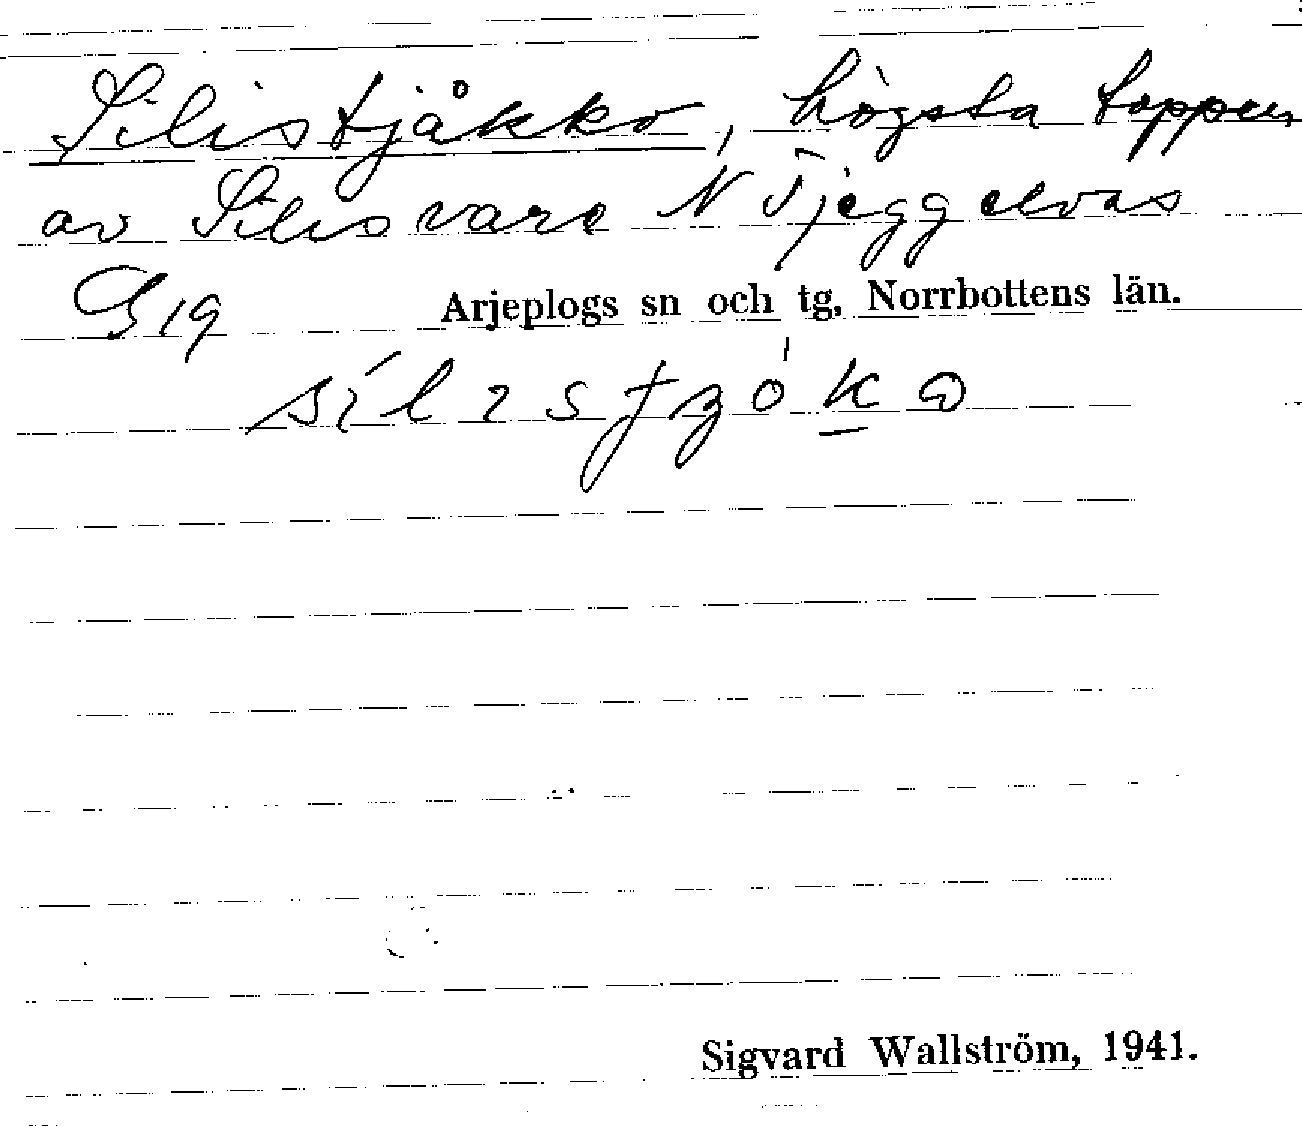 Silistjåkko, högsta toppen
av Silisvare N Tjeggelvas
G19 Arjeplogs sn och tg, Norrbottens län.
Sigvard Wallström, 1941.